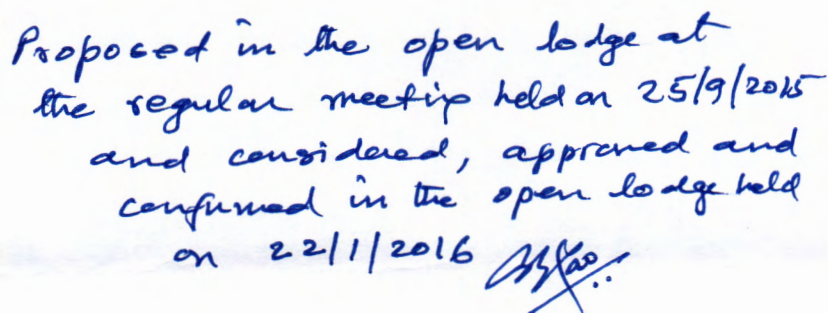 Proposed in the open lodge at
the regular meeting held on 25/9/2015
and considered, approved and
confirmed in the open lodge held
on 22/1/2016